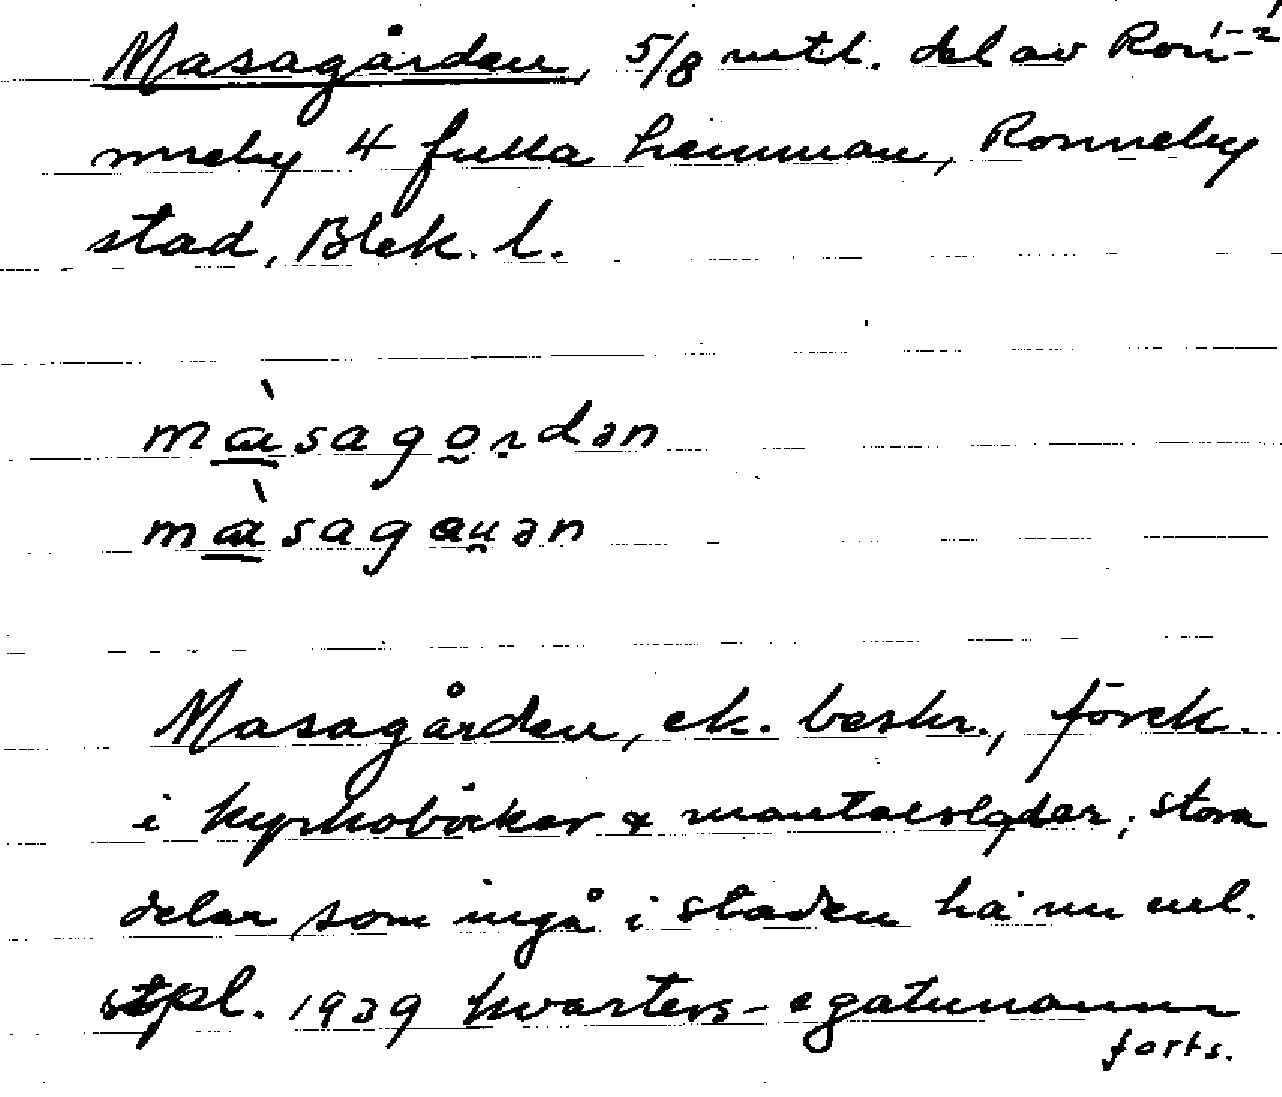 Masagården, 5/8 mtl. del av Ron-
neby 4 fulla hemman, Ronneby
stad, Blek. l.
màsagọrdən
màsagauən
Masagården, ek. beskr., förek.
i kyrkoböcker & mantalslgder; stora
delar som ingå i staden ha nu enl.
stpl. 1939 kvarters- & gatunamn
forts.